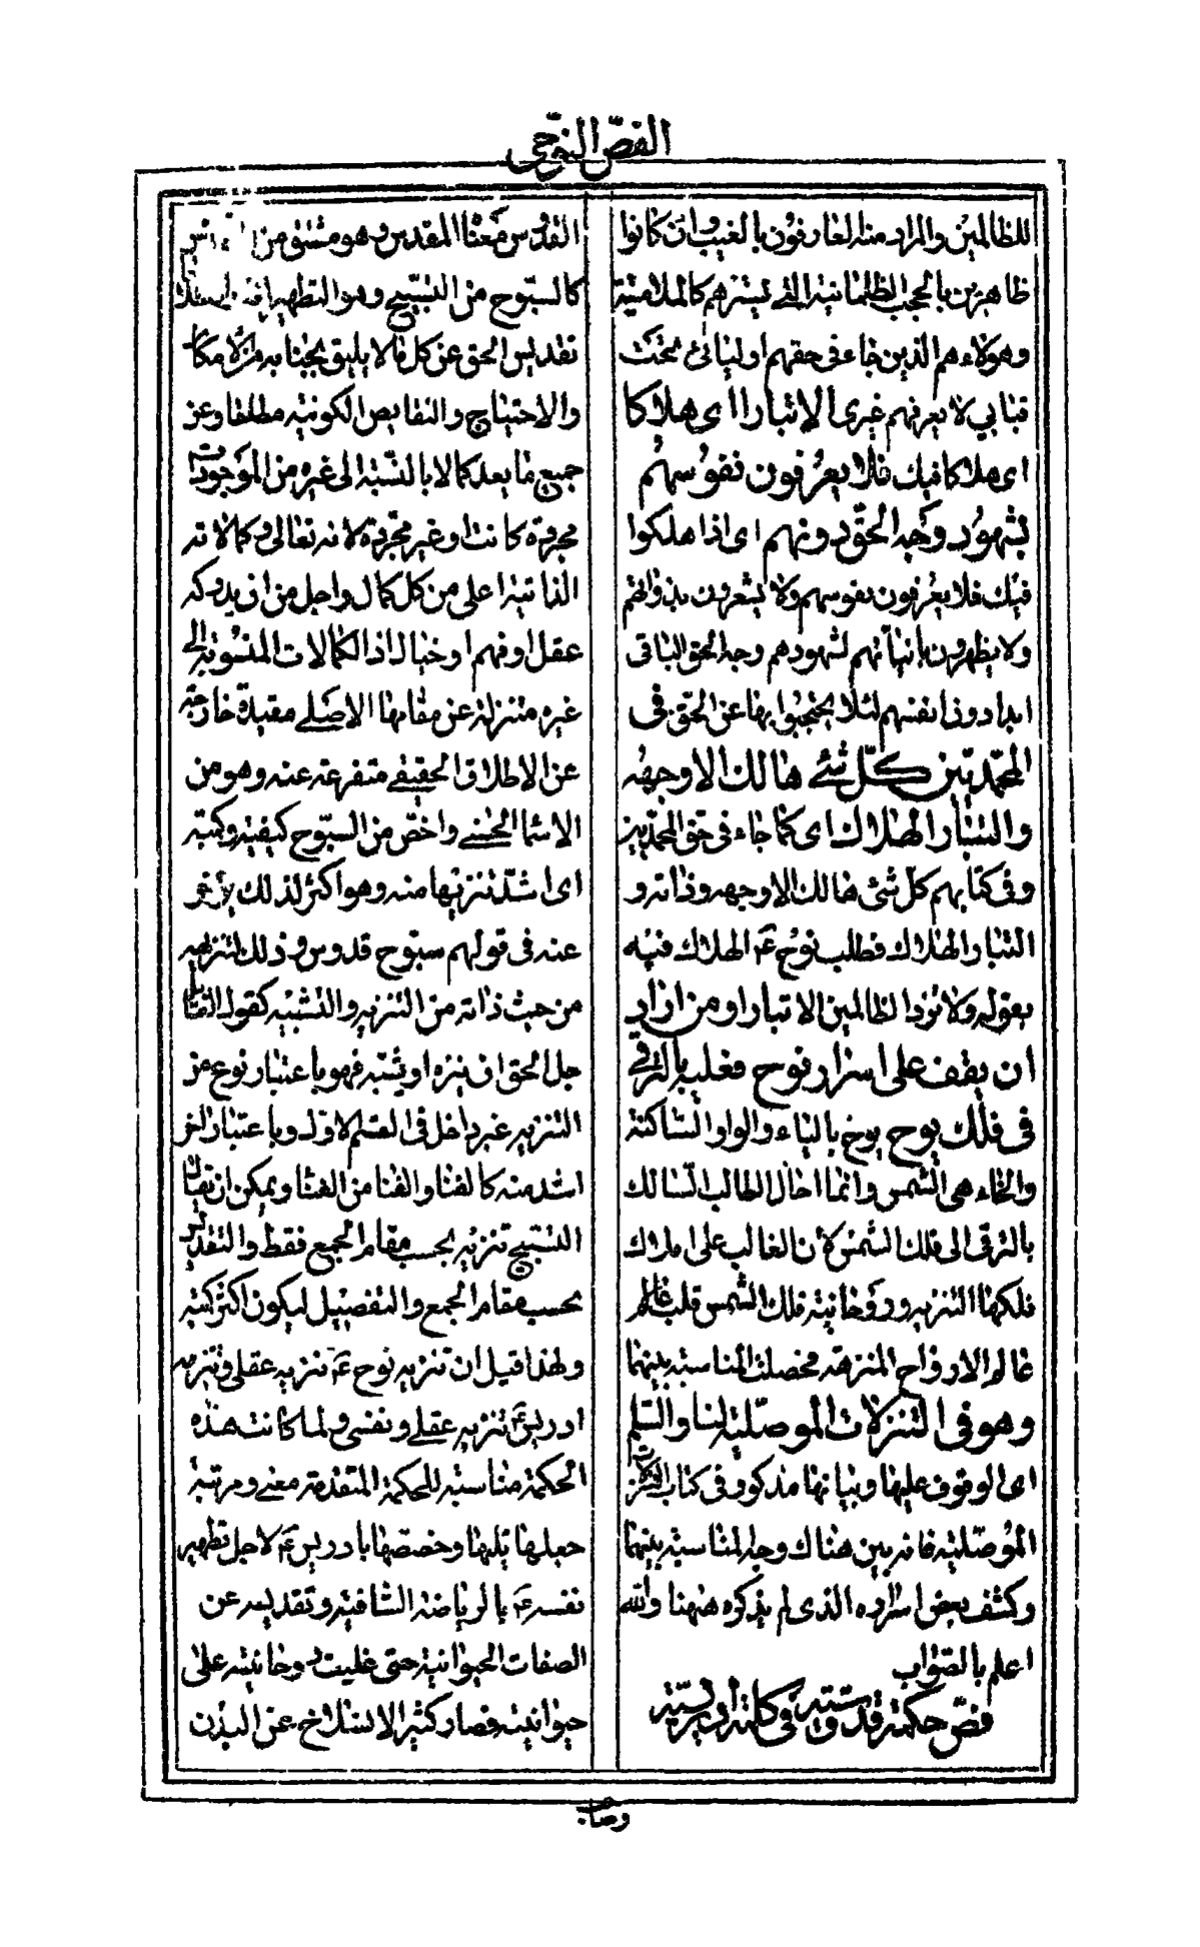 الفصّ النوحى
للظالمين والمراد منه العارفون بالغيب وان كانوا
ظاهرين بالحجب الظلمانية التى تسترهم كالملامتية
وهؤلاء هم الذين جاء فى حقهم اوليائى تحت
قبابي لا يعرفهم غيرى الا تبارا اى هلاكا
اى هلاكا فيك فلا يعرفون نفوسهم
لشهودهم وجه الحق دونهم اى اذا هلكوا
فيك فلا يعرفون نفوسهم ولا يشعرون بذواتهم
ولا يظهرون بانياتهم لشهودهم وجه الحق الباقى
ابدا دون انفسهم لئلا يحتجبوا بها عن الحق فى
المحمّديّين كلّ شئ هالك الا وجهه
والتبار الهلاك اى كما جاء فى حق المحمديين
وفى كتابهم كل شئ هالك الا وجهه وذاته و
التبار الهلاك فطلب نوح عم الهلاك فيه
بقوله ولا تزد الظالمين الا تبارا ومن اراد
ان يقف على اسرار نوح فعليه بالترقى
فى فلك يوح يوح بالياء والواو الساكنة
والحاء هى الشمس وانما احال الطالب السالك
بالترقى الى فلك الشمس لان الغالب على املاك
فلكها التنزيه وروحانية فلك الشمس قلب عالم
عالم الارواح المنزهة فحصلت المناسبة بينهما
وهو فى التنزلات الموصليّة لنا والسّلم
اى الوقوف عليها وبيانها مذكور فى كتاب التنزلات
الموصلية فانه بين هناك وجه المناسبة بينهما
وكشف بعض اسراره الذى لم يذكره ههنا والله
اعلم بالصواب
فصّ حكمة قدّوسيّة فى كلمة ادريسيّة
القدّوس معناه المقدس وهو مشتق من
كالسبّوح من التسبيح وهو التطهير
تقديس الحق عن كل ما لا يليق بجنابه من الامكان
والاحتياج والنقايص الكونية مطلقا وعن
جميع ما يعد كمالا بالنسبة الى غيره من الموجودات
مجردة كانت او غير مجرّدة لانه تعالى وكمالاته
الذاتية اعلى من كل كمال واجل من ان يدركه
عقل او فهم او خيال اذ الكمالات المنسوبة الى
غيره متنزلة عن مقامها الاصلى مقيدة خارجة
عن الاطلاق الحقيقى متفرعة عنه وهو من
الاسما الحسنى واخصّ من السبّوح كيفية وكمية
اى اشدّ تنزيها منه واكثر لذلك يؤخر
عنه فى قولهم سبّوح قدوس وذلك لتنزيهه
من حيث ذاته من التنزيه والتشبيه كقول القائل
جل الحق ان ينزه او يشبّه فهو باعتبار نوع من
التنزيه غير داخل فى القسم الاول وباعتبار اخر
اشد منه كالفنا والفنا من الفنا ويمكن ان يقال
التسبيح تنزيه بحسب مقام الجمع فقط والتقديس
بحسب مقام الجمع والتفصيل ليكون اكثر كمية
ولهذا قيل ان تنزيه نوح عم تنزيه عقلى وتنزيه
ادريس عم تنزيه عقلى ونفسى ولما كانت هذه
الحكمة مناسبة للحكمة المتقدمة معنى ومرتبة
جعلها تليها وخصصها بادريس عم لاجل تطهير
نفسه عم بالرياضة الشاقة وتقديسه عن
الصفات الحيوانية حتى غلبت روحانيته على
حيوانيته فصار كثير الانسلاخ عن البدن
وصا